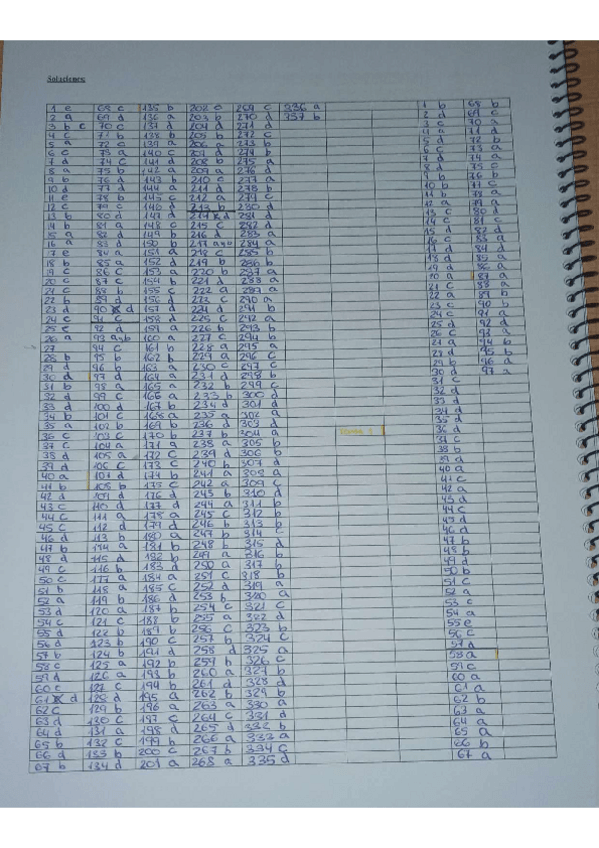 Soluciones:
1 e 68 c 135 b 202 c 269 c 336 a 1 b 68 b
2 a 69 d 136 a 203 b 270 d 337 b 2 d 69 c
3 b c 70 c 137 d 204 d 271 d 3 c 70 a
4 c 138 b 205 b 272 c 4 a 71 d
5 a 72 c 139 a 206 a 273 b 5 d 72 b
6 c 73 a 140 c 207 d 274 b 6 c 73 a
7 d 74 c 141 d 208 b 275 a 7 d 74 a
8 a 75 b 142 a 209 a 276 d 8 d 75 c
9 b 76 d 143 b 210 c 277 a 9 b 76 b
10 d 77 d 144 a 211 d 278 b 10 b 77 c
11 e 78 b 145 c 212 a 279 c 11 b 78 a
12 c 79 c 146 d 213 b 280 d 12 a 79 a
13 b 80 d 147 d 281 d 13 c 80 d
14 b 81 a 148 c 215 c 282 d 14 c 81 c
15 a 82 d 149 b 216 d 283 a 15 d 82 d
16 a 83 d 150 b 284 a 16 c 83 a
84 a 151 a 218 c 285 b 17 d 84 d
18 b 85 a 152 d 219 b 286 b 18 d 85 a
19 c 86 c 153 a 220 b 287 a 19 d 86 a
20 c 87 c 154 b 221 d 288 a 87 a
21 c 88 b 155 c 222 a 289 a 21 c 88 a
22 b 89 d 156 d 223 c 290 a 22 a 89 b
23 d 90 d 157 a 224 d 291 b 23 c 90 b
24 c 91 c 158 d 225 c 292 a 24 c 91 a
25 e 92 d 159 a 226 b 293 b 25 d 92 d
26 a 160 a 227 c 294 b 26 c 93 a
27 94 c 161 b 228 a 295 a 94 b
28 b 95 b 162 b 229 a 296 c 95 b
29 d 96 b 163 a 230 c 297 c 29 b 96 d
30 d 97 d 164 a 231 d 298 b 30 d 97 a
31 b 98 a 165 a 232 b 299 c 31 c
32 d 99 c 166 a 233 b 300 d 32 d
33 d 100 c 167 b 234 d 301 d 33 d
34 b 101 c 168 a 235 a 302 a 34 d
35 a 102 b 169 b 236 d 303 d 35 d
36 c 103 c 170 b 237 b 304 a 36 d
37 c 104 a 171 a 238 a 305 b 37 c
38 d 105 a 172 c 239 d 306 b 38 b
39 d 106 c 173 c 240 b 307 d 39 d
40 a 174 b 241 a 308 a 40 a
41 b 108 b 175 c 242 a 309 c 41 c
42 d 109 d 176 d 310 d 42 a
43 c 110 d 177 d 244 a 311 b 43 d
44 c 111 a 178 a 245 c 312 b 44 c
45 c 112 d 179 d 246 b 313 b 45 d
46 d 113 b 180 a 247 b 314 c 46 d
47 b 114 a 181 b 248 b 315 d 47 b
48 d 115 d 182 b 249 a 316 b 48 b
49 c 116 b 183 d 250 a 317 b 49 d
50 c 117 a 184 a 251 c 318 b 50 b
51 b 118 a 185 c 252 d 319 a 51 c
52 a 119 b 186 d 253 b 320 a 52 a
53 d 120 a 187 b 254 c 321 c 53 c
54 c 121 c 188 b 255 a 322 d 54 a
55 d 122 b 189 b 256 c 323 b 55 e
56 d 123 b 190 c 257 b 324 c 56 c
57 b 124 b 191 d 258 d 325 a 57 d
58 c 125 a 192 b 259 b 326 c 58 a
59 d 126 a 193 b 260 a 327 b 59 c
60 c 127 c 194 b 261 d 328 d 60 a
61 d 128 d 195 a 262 b 329 b 61 a
62 c 129 b 196 a 263 a 330 a 62 b
63 d 130 c 197 c 264 c 331 d 63 a
64 d 131 a 198 d 265 d 332 b 64 a
65 b 132 c 199 b 266 a 333 a 65 a
66 d 133 b 200 c 267 b 334 c 66 b
67 b 134 d 201 a 268 a 335 d 67 a